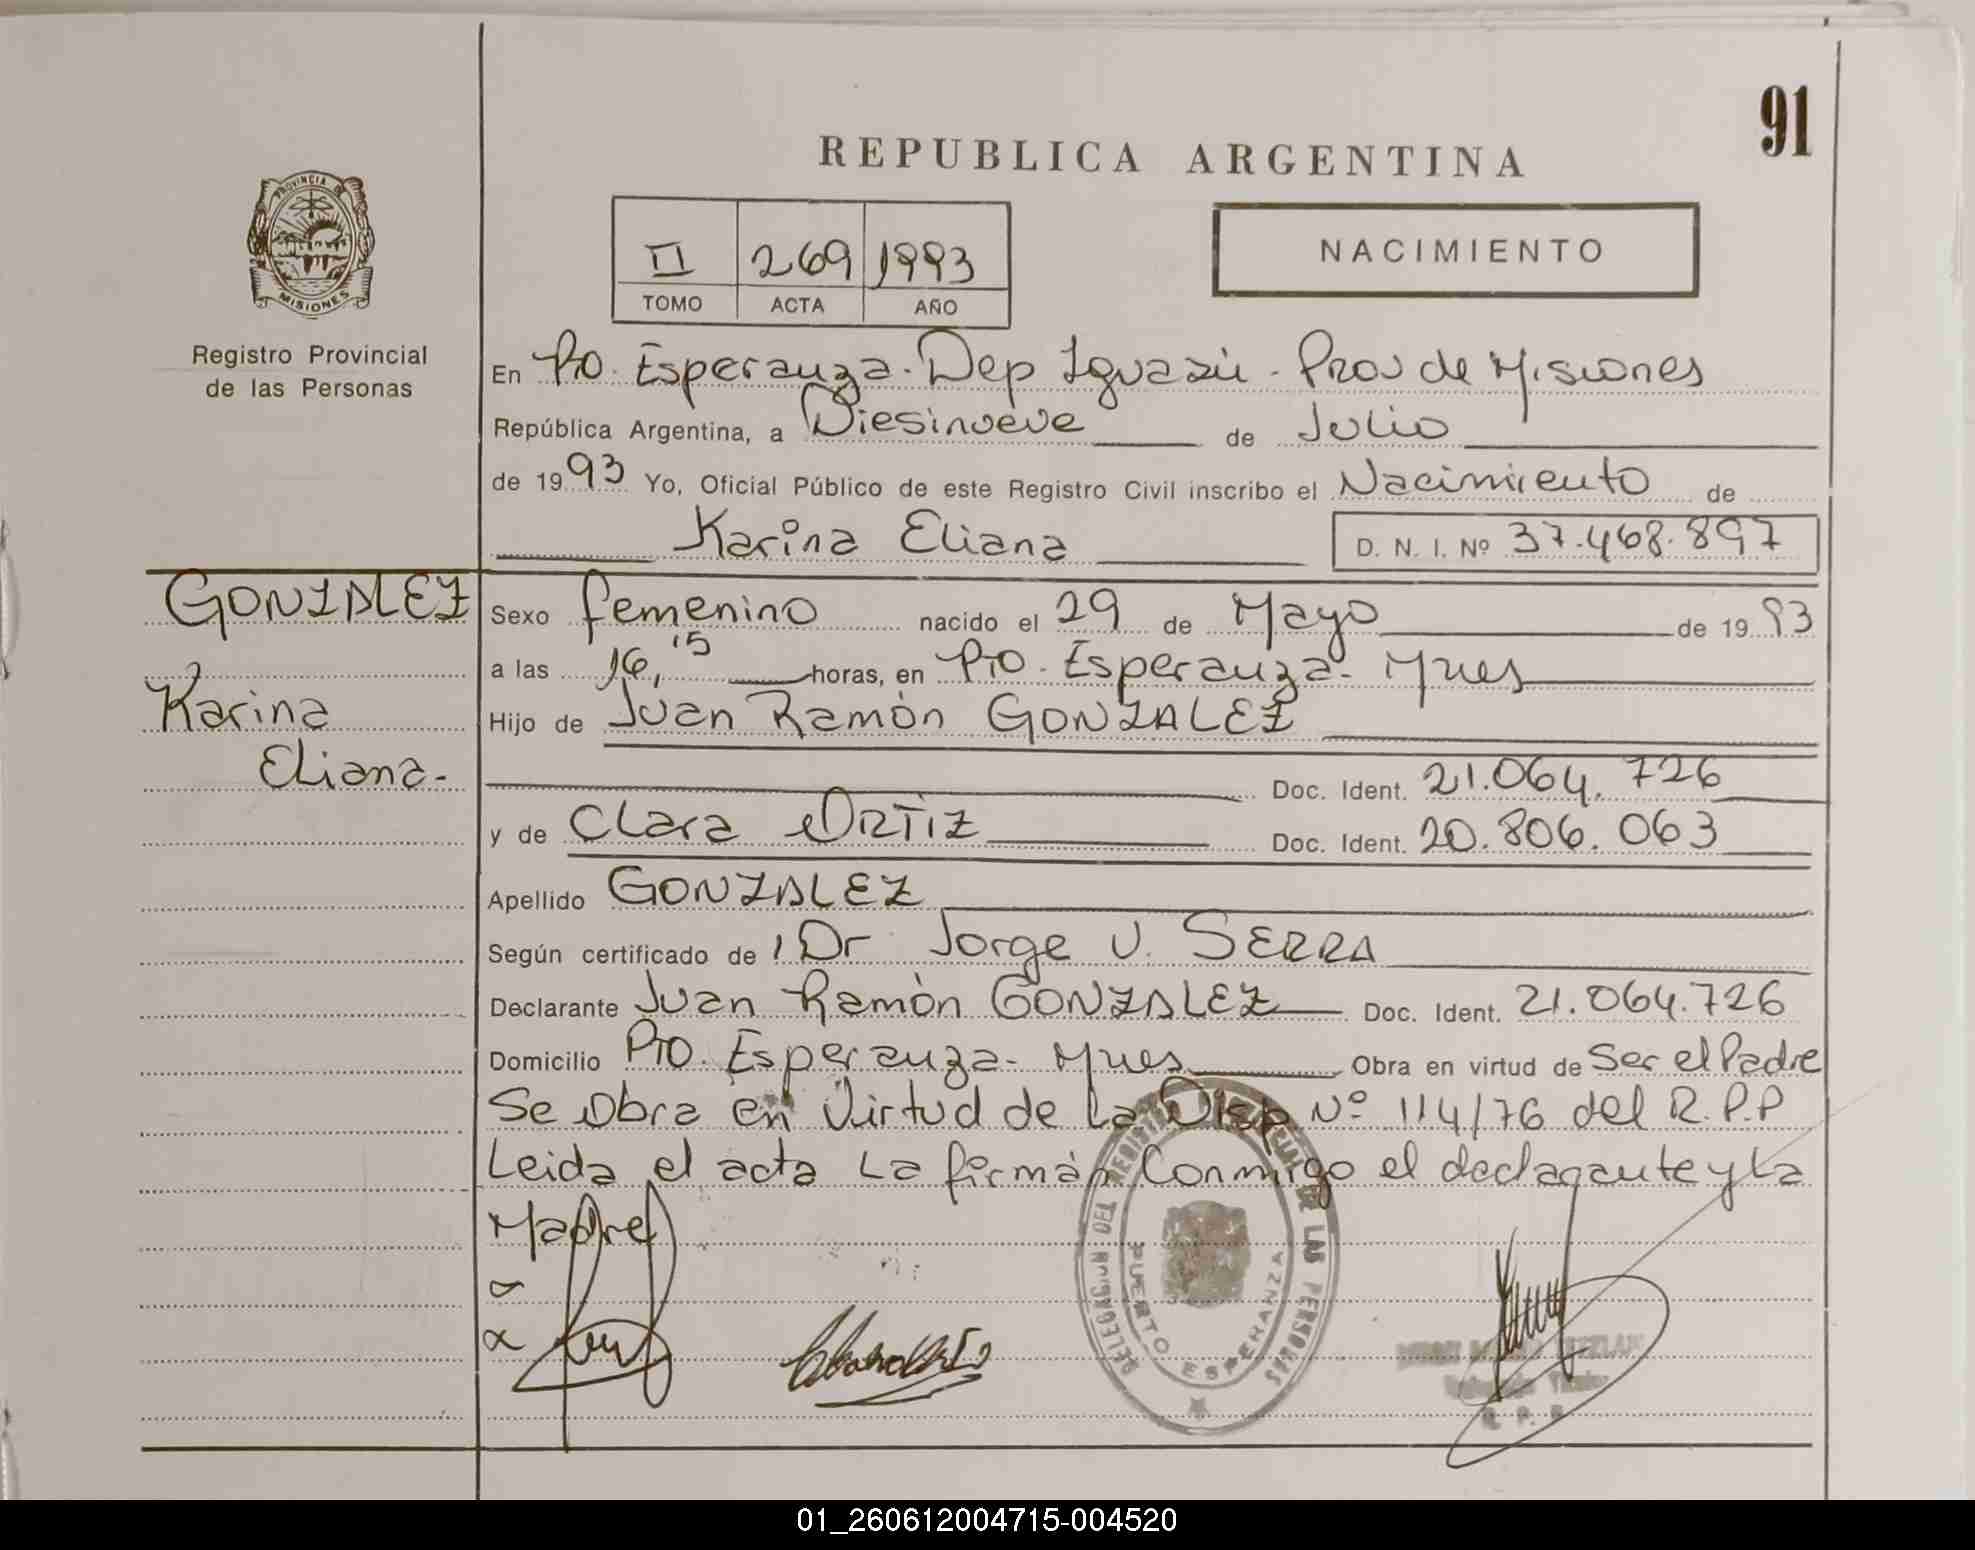 91
REPUBLICA ARGENTINA
PROVINCIA DE
MISIONES
Registro Provincial
de las Personas
II 269 1993
TOMO ACTA AÑO
NACIMIENTO
En Pto. Esperanza. Dep Iguazú - Prov de Misiones
República Argentina, a Diesinueve de Julio
de 1993 Yo, Oficial Público de este Registro Civil inscribo el Nacimiento de
Karina Eliana D. N. I. Nº 37.468.897
GONZALEZ
Karina
Eliana-
Sexo femenino nacido el 29 de Mayo de 1993
a las 16,15 horas, en Pto. Esperanza- Mnes
Hijo de Juan Ramón GONZALEZ
Doc. Ident. 21.064.726
y de Clara ORTIZ Doc. Ident. 20.806.063
Apellido GONZALEZ
Según certificado de Dr Jorge V. SERRA
Declarante Juan Ramón GONZALEZ Doc. Ident. 21.064.726
Domicilio Pto. Esperanza- Mnes Obra en virtud de Ser el Padre
Se Obra en Virtud de la Disp Nº 114/76 del R.P.P
Leida el acta La firmán Conmigo el declarante y La
Madre
DELEGACION DEL REGISTRO PROVINCIAL DE LAS PERSONAS
PUERTO ESPERANZA
R. P. P.
01_260612004715-004520